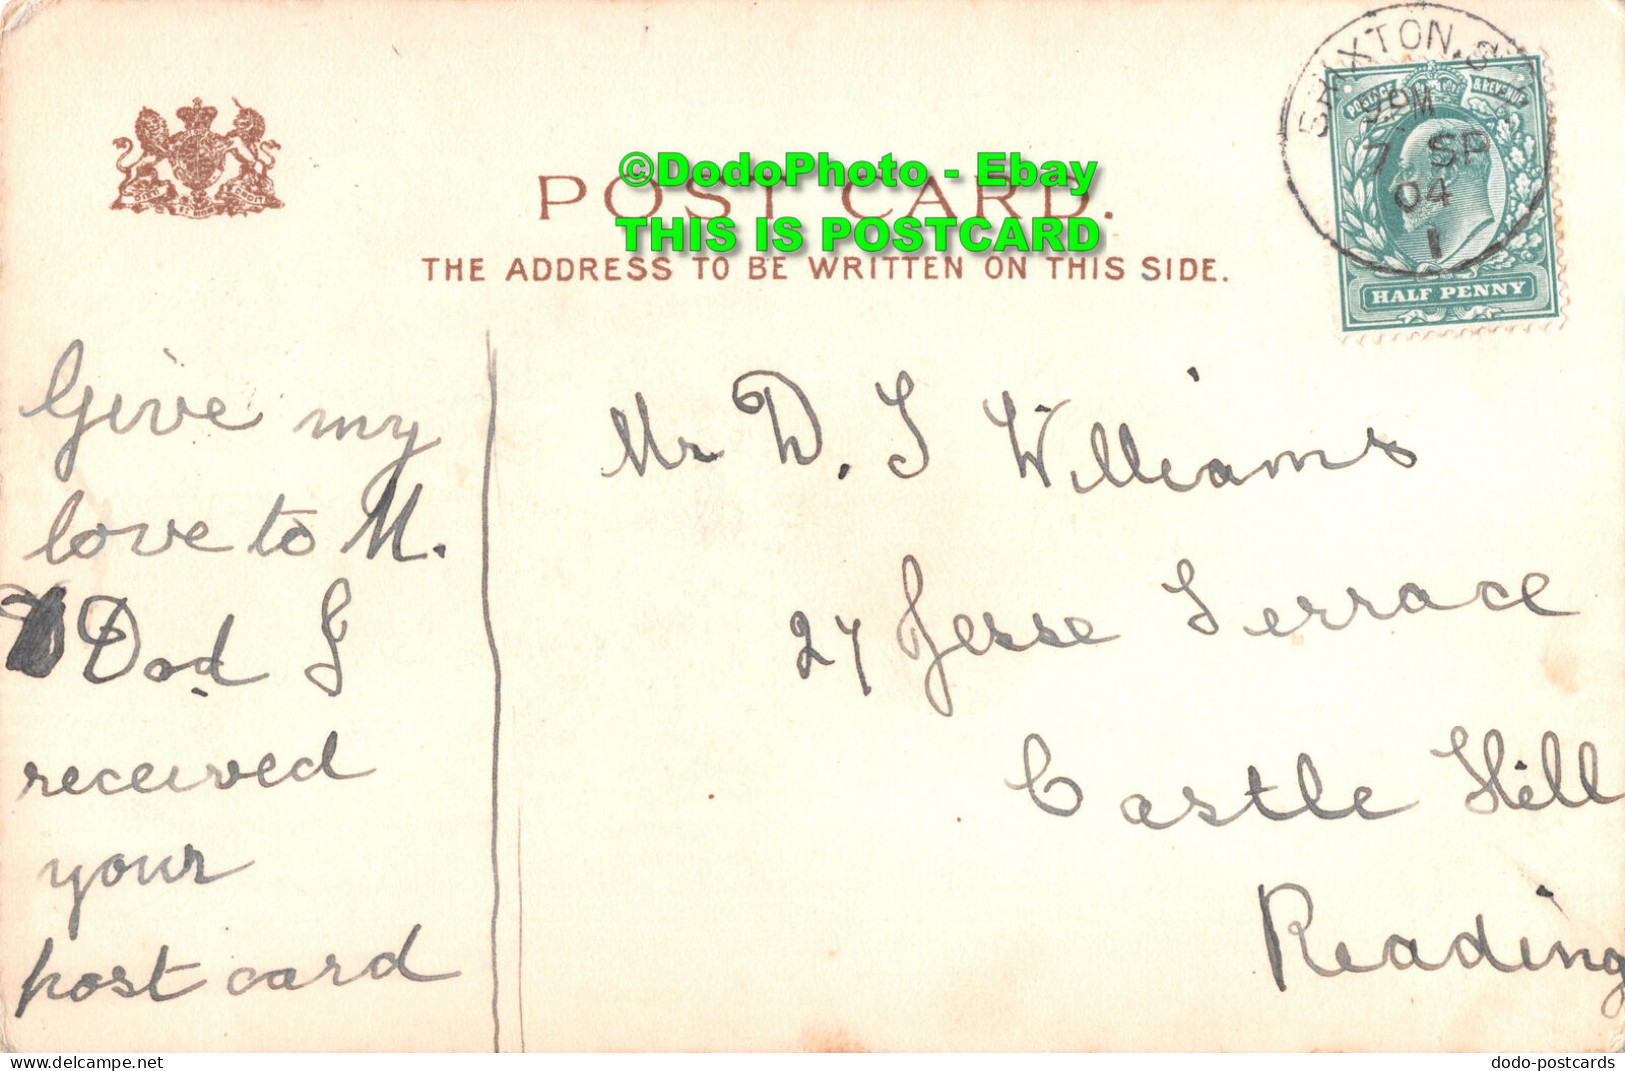 ©DodoPhoto - Ebay
POST CARD.
THIS IS POSTCARD
THE ADDRESS TO BE WRITTEN ON THIS SIDE.
POSTAGE & REVENUE
9 PM
7 SP
04
1
HALF PENNY
Give my
love to M.
Dod I
received
your
post card
Mr D. J Williams
27 Jesse Terrace
Castle Hill
Reading
delcampe.net
dodo-postcards